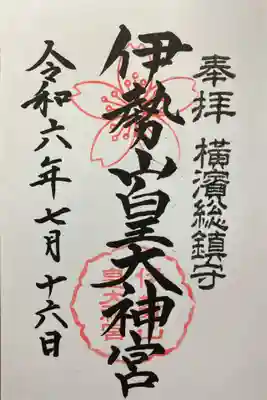 奉拝 横濱総鎮守
伊勢山皇大神宮
令和六年七月十六日